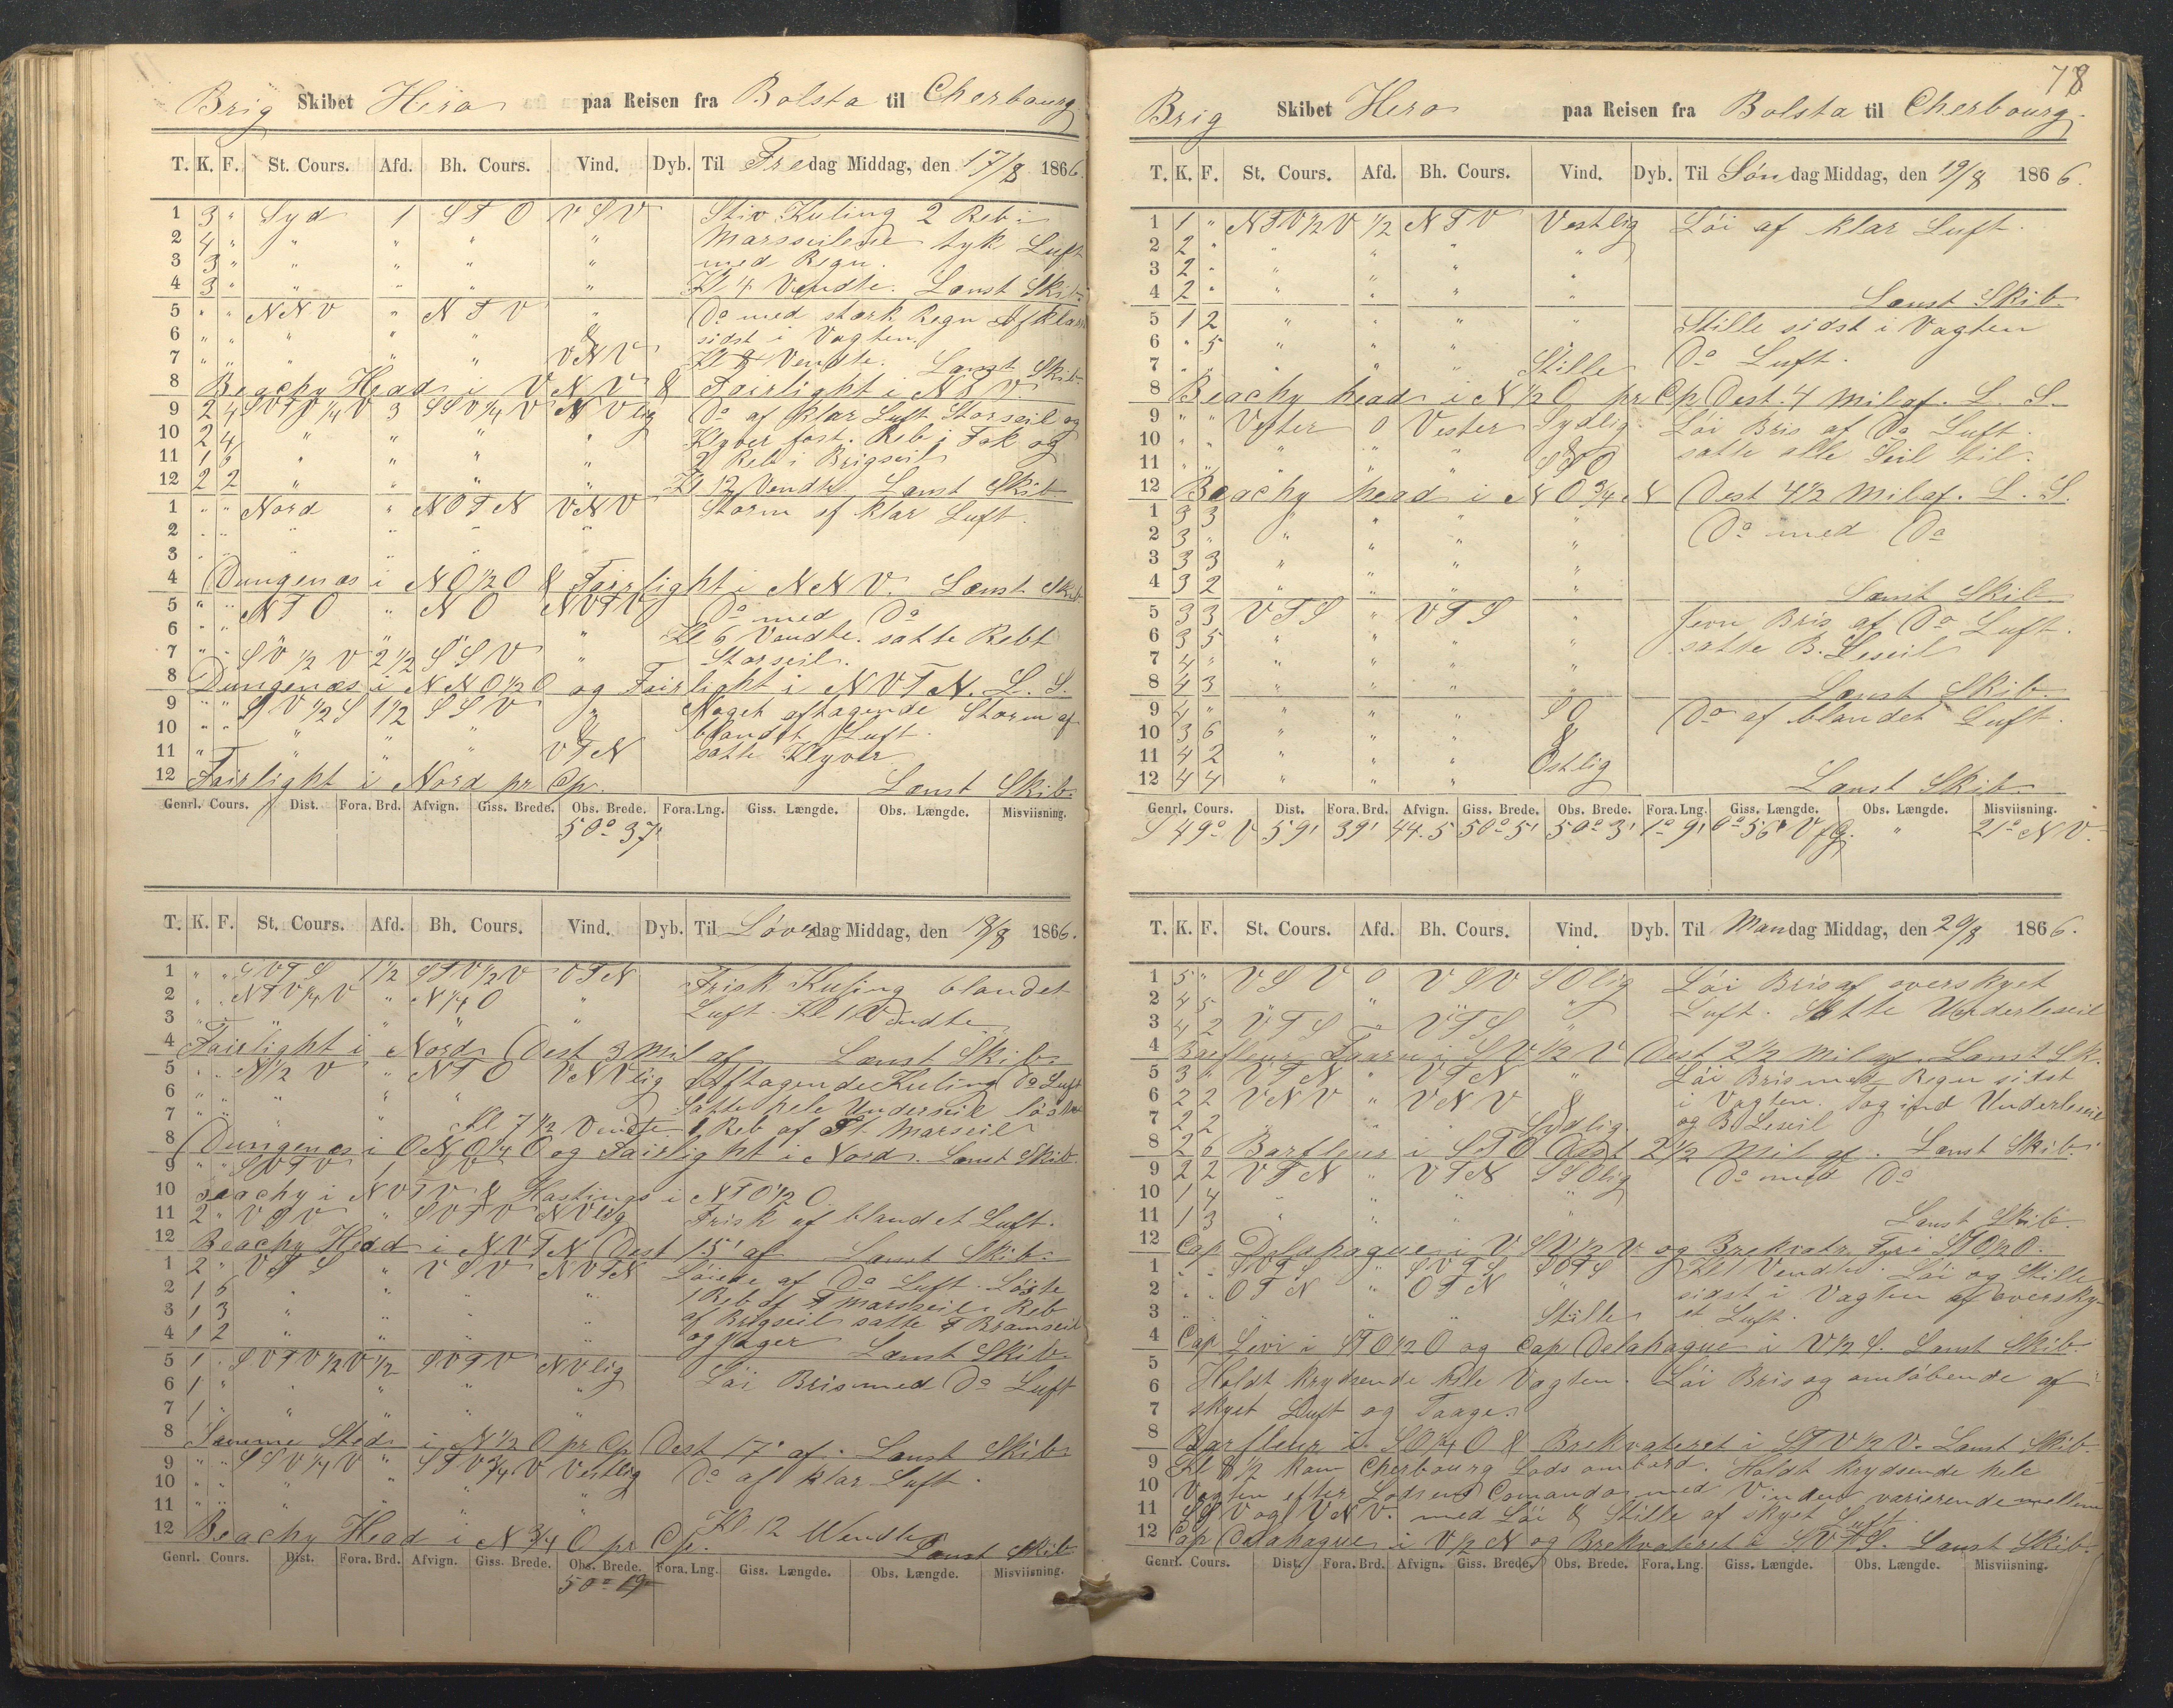 Brig Skibet Hero paa Reisen fra Bolsta til Cherbourg
T. K. F. St. Cours. Afd. Bh. Cours. Vind. Dyb. Til Fredag Middag, den 17/8 1866.
1 3 " Syd 1 S T O V S V Stiv Kuling 2 Reb i
2 4 " " " " " Marsseilene tyk Luft
3 3 " " " " " med Regn.
4 3 " " " " " Kl 4 Vendte. Lænst Skib
5 " " N N V " N T V " Do med stærk Regn Afklare
6 " " " " " & sidst i Vagten.
7 " " " " " V N V Kl 8 Vendte. Lænst Skib
8 Beachy Head i V N V & Fairlight i N T V.
9 2 4 S V T V 1/4 V 3 S S V 1/4 V N V lig Do af klar Luft Storseil og
10 2 4 " " " " Klyver fast. Reb i Fok og
11 1 2 " " " " 2 Reb i Brigseil
12 2 2 " " " " Kl 12 Vendte Lænst Skib
1 " " Nord " N O T N V N V Storm af klar Luft.
2 " " " " "
3 " " " " "
4 Dungenæs i N O 1/2 O & Fairlight i N N V. Lænst Skib
5 " " N T O " N O N V T V Do med Do
6 " " " Kl 6 Vendte. satte Rebt
7 " " S V 1/2 V 2 1/2 S S V " Storseil.
8 Dungenæs i N N O 1/2 O og Fairlight i N V T N. L. S.
9 " " S V 1/2 S 1 1/2 S S V " Noget aftagende Storm af
10 " " " " " & blandet Luft.
11 " " " V T N satte Klyver
12 Fairlight i Nord pr Cp. Lænst Skib.
Genrl. Cours. Dist. Fora. Brd. Afvign. Giss. Brede. Obs. Brede. Fora. Lng. Giss. Længde. Obs. Længde. Misviisning.
50° 37'
T. K. F. St. Cours. Afd. Bh. Cours. Vind. Dyb. Til Løverdag Middag, den 18/8 1866.
1 " " S V T S 1 1/2 S T V 1/2 V V T N Frisk Kuling blandet
2 " " N T V 1/4 V " N 1/4 O " Luft. Kl 1 Vendte
3 " " " " " "
4 Fairlight i Nord Dest 3 Mil af Lænst Skib
5 " " N 1/2 V " N T O V N V lig Aftagende Kuling Do Luft
6 " " " " " Satte hele Underseil
7 " " " Kl 7 1/2 Vendte 1 Reb af St. Marseil
8 Dungenæs i O N O 1/4 O og Fairlight i Nord. Lænst Skib
9 " " S V T V 1 S V
10 Beachy i N V T V & Hastings i N T O 1/2 O.
11 2 " V S V " S V T V N V lig Frisk af blandet Luft.
12 Beachy Head i N V T N Dest 15' af Lænst Skib.
1 2 " V T S " V S V N V T N Løiede af Do Luft. Løste
2 1 6 " " " " 1 Reb af F Marsseil. Reb
3 1 3 " " " " af Brigseil satte F Bramseil
4 1 2 " " " " og Jager Lænst Skib
5 1 " S V T V 1/2 V 1/2 S V T V N V lig Løi Bris med Do Luft
6 1 " " " " "
7 1 " " " " "
8 Samme Sted i N 1/2 O pr Cp Dest 17' af. Lænst Skib
9 " " S S V 1/4 V " S T V 3/4 V Vestlig Do af klar Luft.
10 " " " " " "
11 " " " " " "
12 Beachy Head i N 3/4 O pr Cp. Kl 12 Wendte Lænst Skib
Genrl. Cours. Dist. Fora. Brd. Afvign. Giss. Brede. Obs. Brede. Fora. Lng. Giss. Længde. Obs. Længde. Misviisning.
50° 19
78
Brig Skibet Hero paa Reisen fra Bolsta til Cherbourg.
T. K. F. St. Cours. Afd. Bh. Cours. Vind. Dyb. Til Søndag Middag, den 19/8 1866.
1 1 " N T V 1/2 V 1/2 N T V Vestlig Løi af klar Luft.
2 2 " " " " "
3 2 " " " " "
4 2 " " " " " Lænst Skib
5 1 2 " " " " Stille sidst i Vagten
6 " 5 " " " Do Luft.
7 " " " " " Stille
8 Beachy head i N 1/2 O pr Cp Dest. 4 Mil af. L. S.
9 " " Vester 0 Vester Sydlig Løi Bris af Do Luft.
10 " " " " " & satte alle Seil til.
11 " " " " " S S O
12 Beachy head i N O 3/4 N Dest 4 1/2 Mil af. L. S.
1 3 3 " " " " Do med Do
2 3 " " " " "
3 3 3 " " " "
4 3 2 " " " " Lænst Skib
5 3 3 V T S " V T S " Jevn Bris af Do Luft.
6 3 5 " " " " satte B. Leseil
7 4 " " " " "
8 4 3 " " " " Lænst Skib.
9 4 " " " " S O Do af blandet Luft.
10 3 6 " " " &
11 4 2 " " " Østlig
12 4 4 " " " Lænst Skib.
Genrl. Cours. Dist. Fora. Brd. Afvign. Giss. Brede. Obs. Brede. Fora. Lng. Giss. Længde. Obs. Længde. Misviisning.
S 49° V 59' 39' 44.5 50° 5' 50° 3' 1° 9' 0° 56' V f G. " 21° N V.
T. K. F. St. Cours. Afd. Bh. Cours. Vind. Dyb. Til Mandag Middag, den 20/8 1866.
1 5 " V S V 0 V S V S O lig Løi Bris af overskyet
2 4 5 " " " " Luft. Sætte Underleseil
3 4 2 V T S " V T S "
4 Barfleur Taarn i S V 1/2 V Dest 2 1/2 Mil af. Lænst Sk.
5 3 6 V T N " V T N " Løi Bris med Regn sidst
6 2 2 V N V " V N V & i Vagten. tog ind Underleseil
7 2 2 " " " Sydlig og B Leseil
8 2 6 Barfleur i S T O Dest 2 1/2 Mil af. Lænst Skib.
9 2 2 V T N " V T N S S O lig Do med Do
10 1 4 " " " "
11 1 3 " " " " Lænst Skib.
12 Cap Delahague i V S V 1/2 V og Brekvatr Fyr i S T O 1/2 O.
1 " " S V T S " S V T S S O T S Kl 1 Vendte. Løi og Stille
2 " " O T N " O T N " sidst i Vagten af oversky-
3 " " " " " Stille et Luft.
4 Cap Levi i S T O 1/2 O og Cap Delahague i V 1/2 S. Lænst Skib.
5 Holdt krydsende hele Vagten. Løi Bris og omløbende af
6
7 skyet Luft og Taage.
8 Barfleur i S O 1/4 O & Brekvateret i S T V 1/2 V. Lænst Skib.
9 Kl 8 1/2 kom Cherbourg Lods ombord. Holdt krydsende hele
10 Vagten efter Lodsens Comando med Vinden varierende mellem
11 S S V og V N V. med Løi & Stille af skyet Luft.
12 Cap Delahague i V 1/2 N og Brekvateret i S V T S. Lænst Skib.
Genrl. Cours. Dist. Fora. Brd. Afvign. Giss. Brede. Obs. Brede. Fora. Lng. Giss. Længde. Obs. Længde. Misviisning.